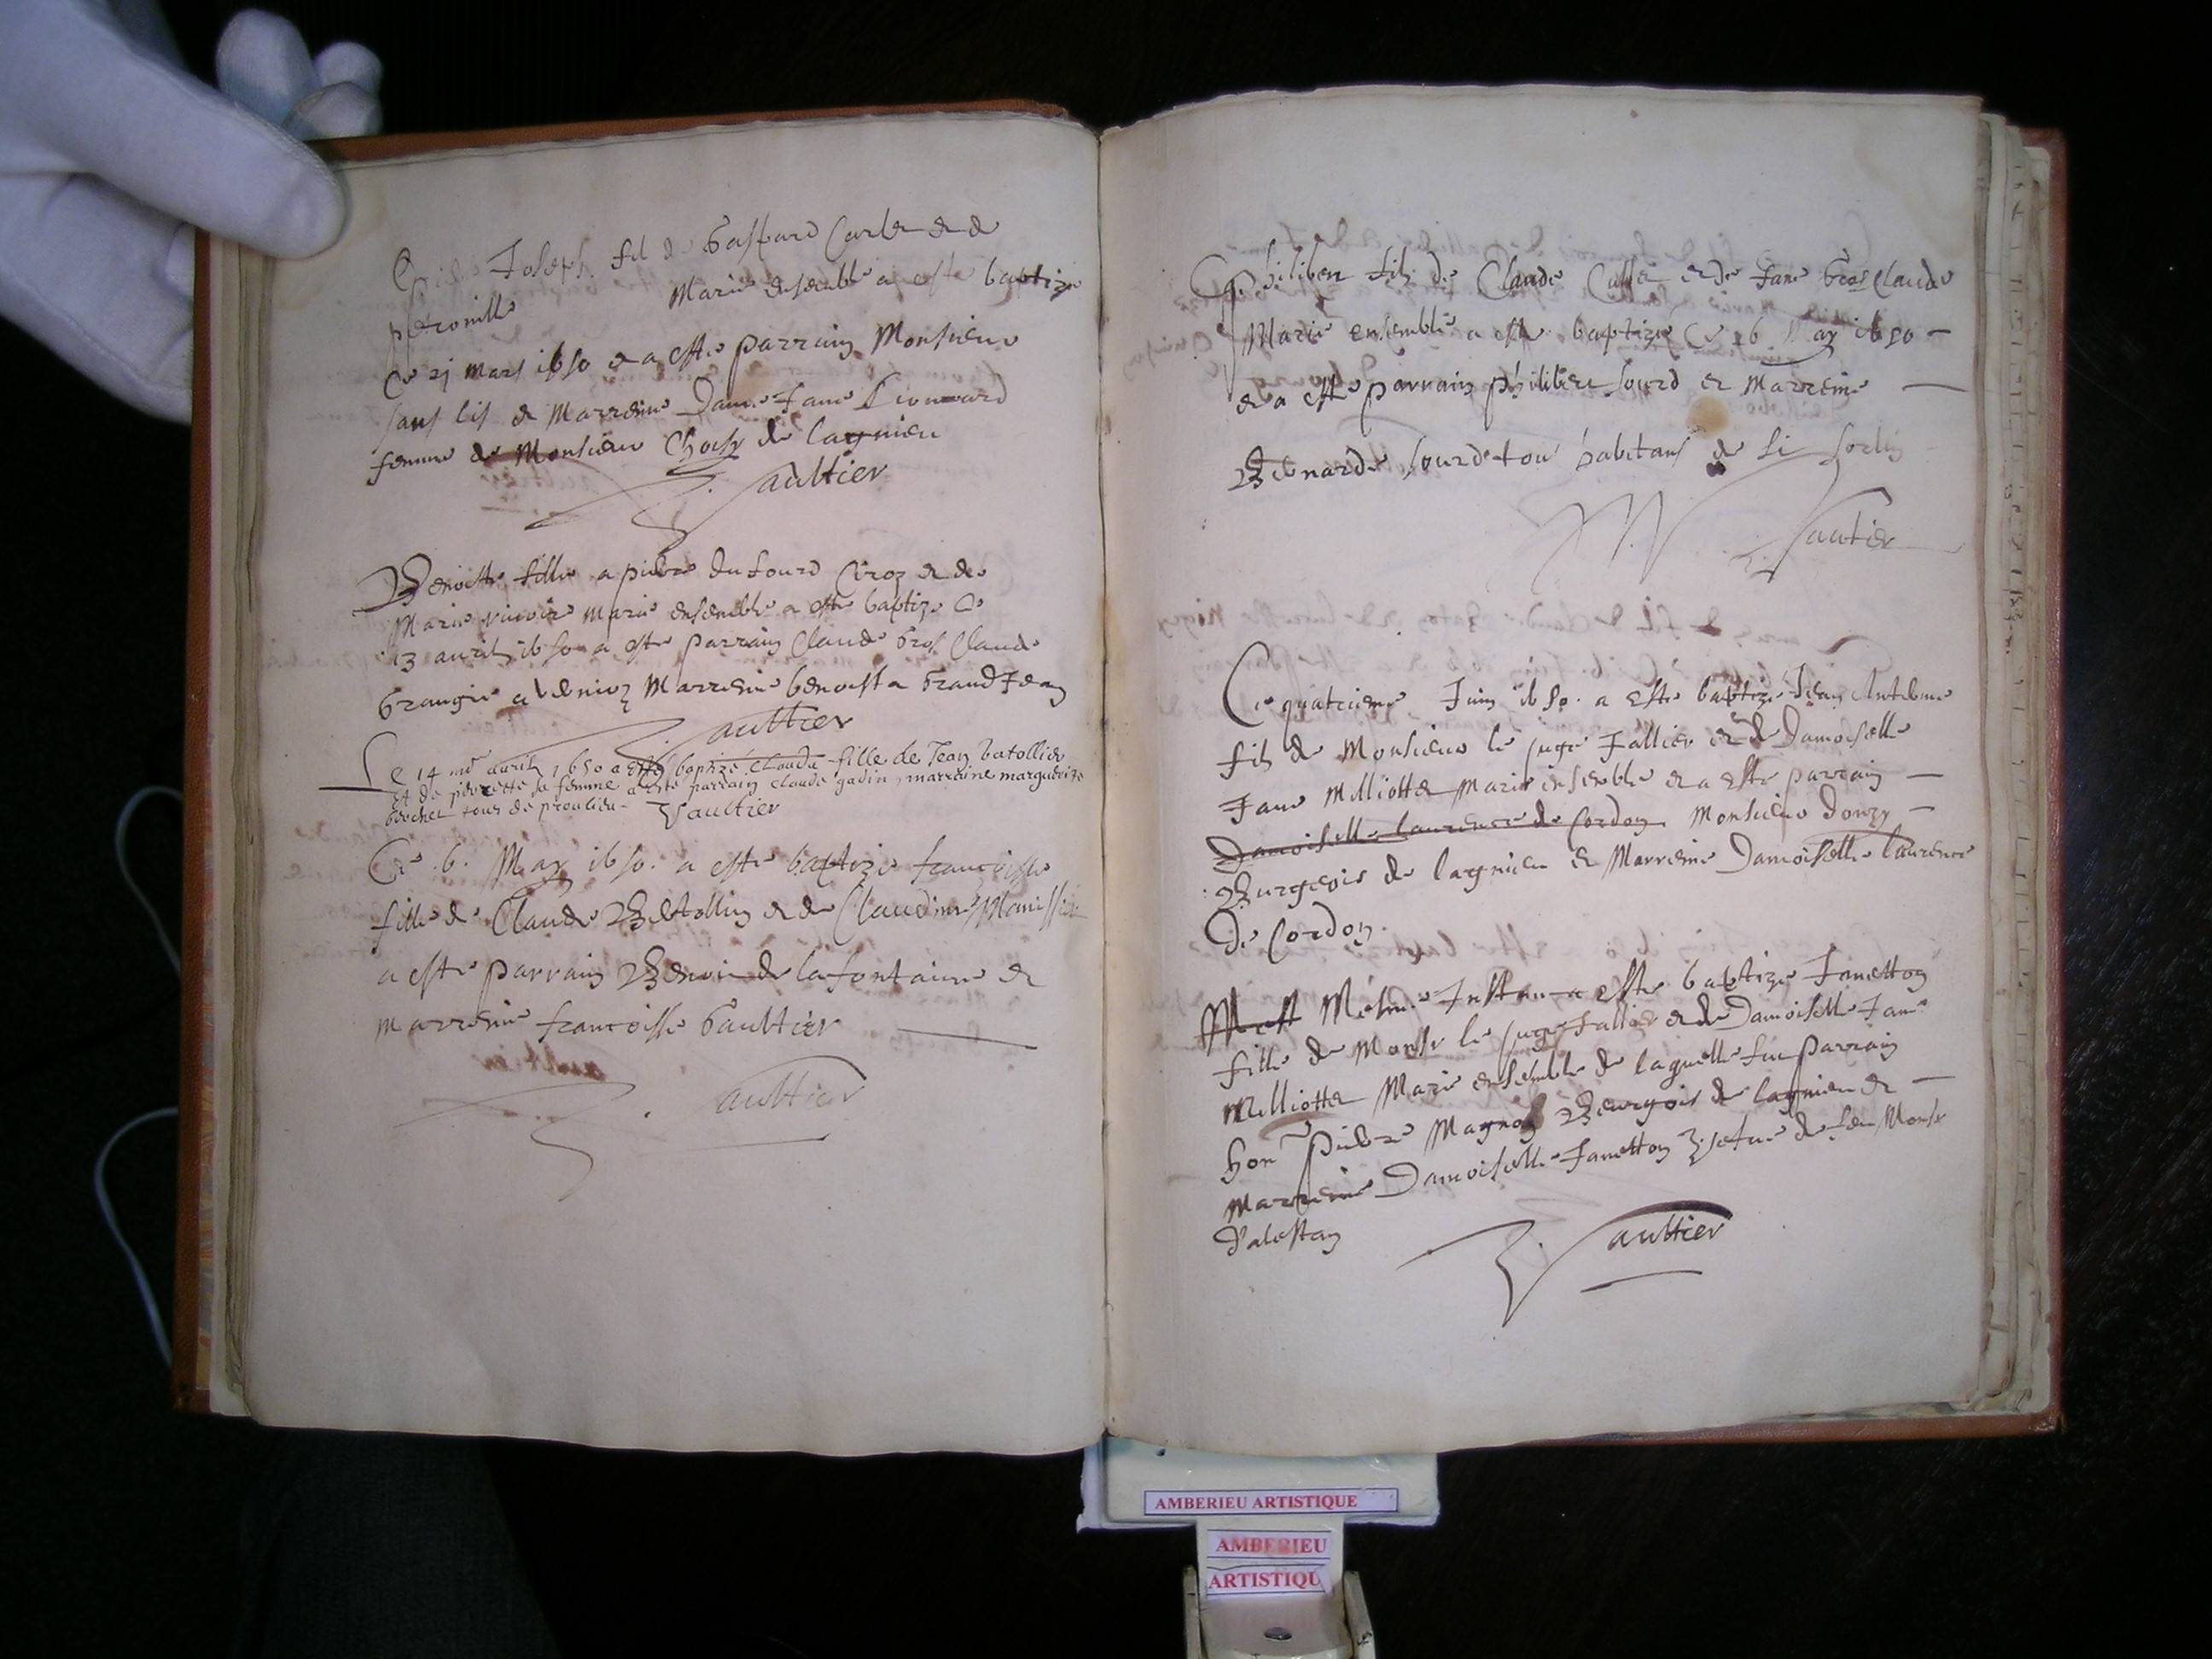 Joseph fil de Gaspard Carle et de
petronille Marie ensemble a este baptize
Ce 21 mars 1650 et a este parrain Monsieur
sans lis et Marreine Dame Jane
femme de Monsieur Choisy de lagnieu
Gaultier
Benoiste fille a pierre du four Croz et de
Marie Marie ensemble a este baptize Ce
13 avril 1650 a este parrain Claude Gros Claude
Grangie a Marreine benoista Grand Jean
Gaultier
Le 14 me avril 1650 a este baptizé Clauda fille de Jean batollier
et de pierrette sa femme a esté parrain claude gadin, marraine marguerite
brochet tous de proulieu
Gaultier
Ce 6. May 1650. a este baptize francoise
fille de Claude Betollin et de Claudine
a este parrain Benoit de lafontaine et
marreine francoise Gaultier
Gaultier
Philibert fils de Claude et de Jane Gros Claude
Marie ensemble a este baptize Ce 26 May 1650
et a este parrain philibert sourd et Marreine
Bernarde sourd tou habitans de St sorlin
Gautier
Ce quatrieme Juin 1650. a este baptize Jean Antoine
fils de Monsieur le juge Jallier et de Damoiselle
Jane Milliottet Marie ensemble et a este parrain
Damoiselle laurence de Cordon Monsieur Donzy
Burgeois de lagnieu et Marreine Damoiselle laurence
De Cordon.
Mesme Instan a este baptize Janetton
fille de Monsr le juge Jallier et de Damoiselle Jane
Milliottet Marie ensemble de laquelle fut parrain
hon Pierre Magnon Beurgois de lagnieu et
Marreine Damoiselle Janetton de feu Monsr
Dalestan
Gaultier
AMBERIEU ARTISTIQUE
AMBERIEU
ARTISTIQU